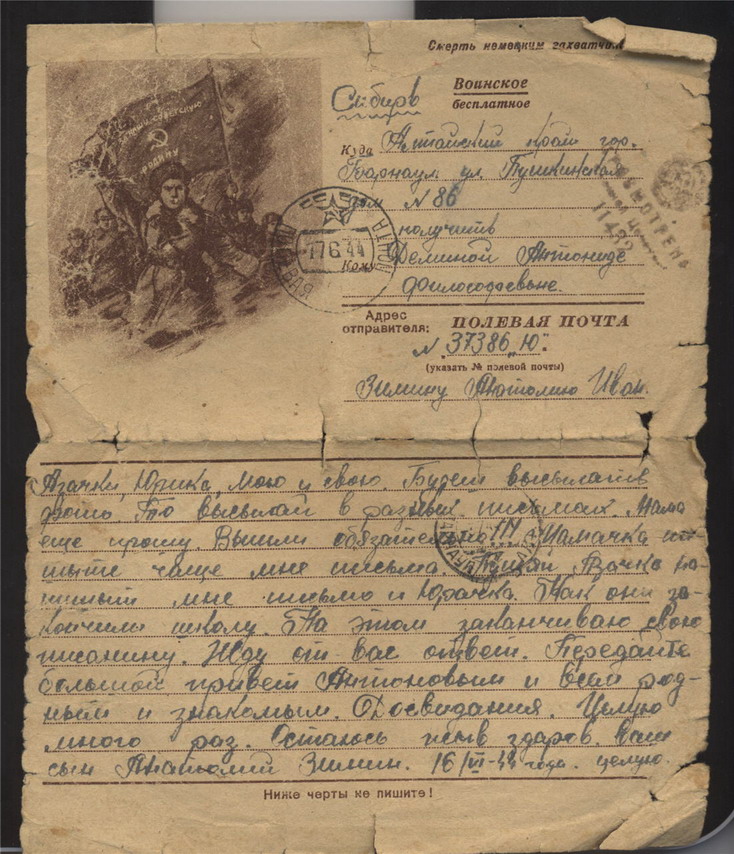 Смерть немецким захватчик
Сибирь
Воинское
бесплатное
Куда Алтайский край гор.
Барнаул ул. Пушкинская
дом № 86
получить
Кому Деминой Антониде
Философовьне.
Адрес отправителя: ПОЛЕВАЯ ПОЧТА
№ 37386 „Ю".
(указать № полевой почты)
Зимину Анатолию Иван.
РОДИНУ
ПОЛЕВАЯ ПОЧТА
17 6 44
ПРОСМОТРЕНО
11432
Азачки, Юрика, мою и свою. Будет высылать
фото. То высылай в разных письмах. Мама
еще прошу. Вышли обязательно. Мамачка пи-
шыте чаще мне письма. Пускай Азачка на-
пишыт мне письмо и Юрачка. Как они за-
кончили школу. На этом заканчиваю свою
писанину. Жду от вас ответ. Передайте
большой привет Антоновым и всем род-
ным и знакомым. Досвидания. Целую
много раз. Остаюсь жыв здаров. Ваш
сын Анатолий Зимин. 16/VI-44 года. целую.
Ниже черты не пишите!